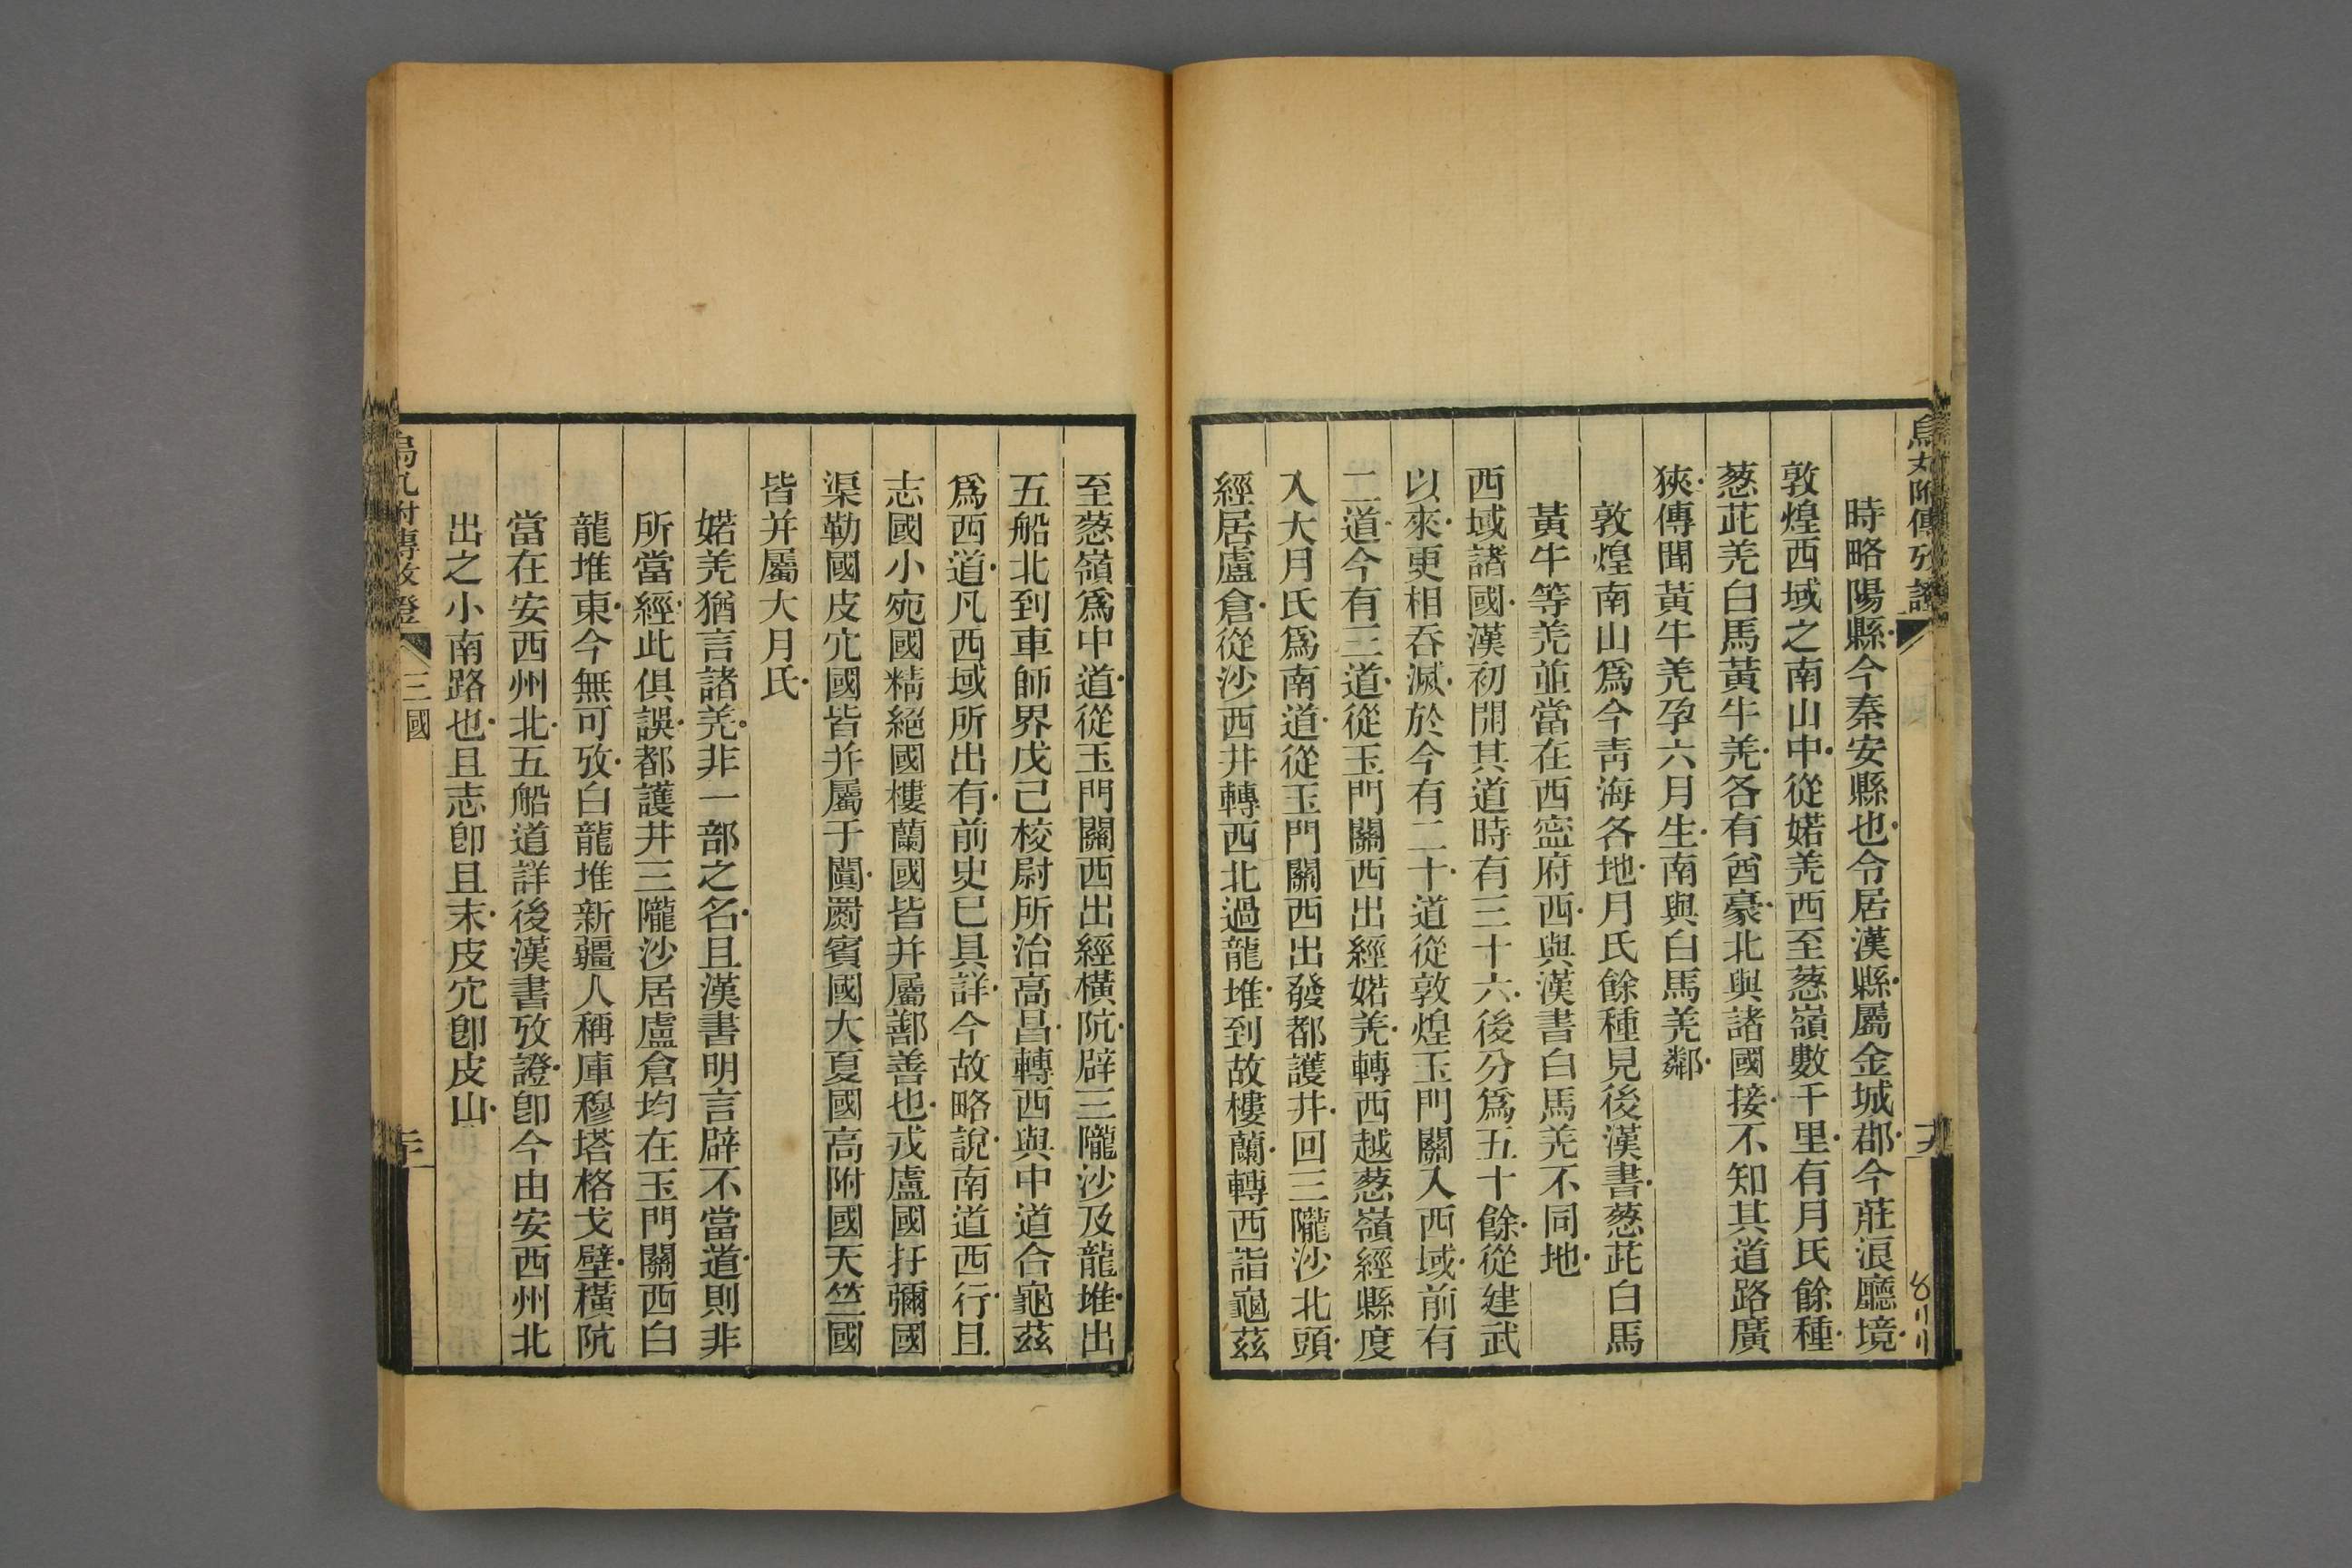 烏丸附傳攷證
時略陽縣今秦安縣也令居漢縣屬金城郡今莊浪廳境
敦煌西域之南山中從婼羌西至葱嶺數千里有月氏餘種
葱茈羌白馬黃牛羌各有酋豪北與諸國接不知其道路廣
狹傳聞黃牛羌孕六月生南與白馬羌鄰
敦煌南山爲今靑海各地月氏餘種見後漢書葱茈白馬
黃牛等羌並當在西寍府西與漢書白馬羌不同地
西域諸國漢初開其道時有三十六後分爲五十餘從建武
以來更相呑滅於今有二十道從敦煌玉門關入西域前有
二道今有三道從玉門關西出經婼羌轉西越葱嶺經縣度
入大月氏爲南道從玉門關西出發都護井回三隴沙北頭
經居盧倉從沙西井轉西北過龍堆到故樓蘭轉西詣龜茲
至葱嶺爲中道從玉門關西出經橫阬辟三隴沙及龍堆出
五船北到車師界戊己校尉所治高昌轉西與中道合龜茲
爲西道凡西域所出有前史已具詳今故略說南道西行且
志國小宛國精絕國樓蘭國皆并屬鄯善也戎盧國扜彌國
渠勒國皮宂國皆并屬于闐罽賓國大夏國高附國天竺國
皆并屬大月氏
婼羌猶言諸羌非一部之名且漢書明言辟不當道則非
所當經此俱誤都護井三隴沙居盧倉均在玉門關西白
龍堆東今無可攷白龍堆新疆人稱庫穆塔格戈壁橫阬
當在安西州北五船道詳後漢書攷證卽今由安西州北
出之小南路也且志卽且末皮宂卽皮山
烏丸附傳攷證 三國